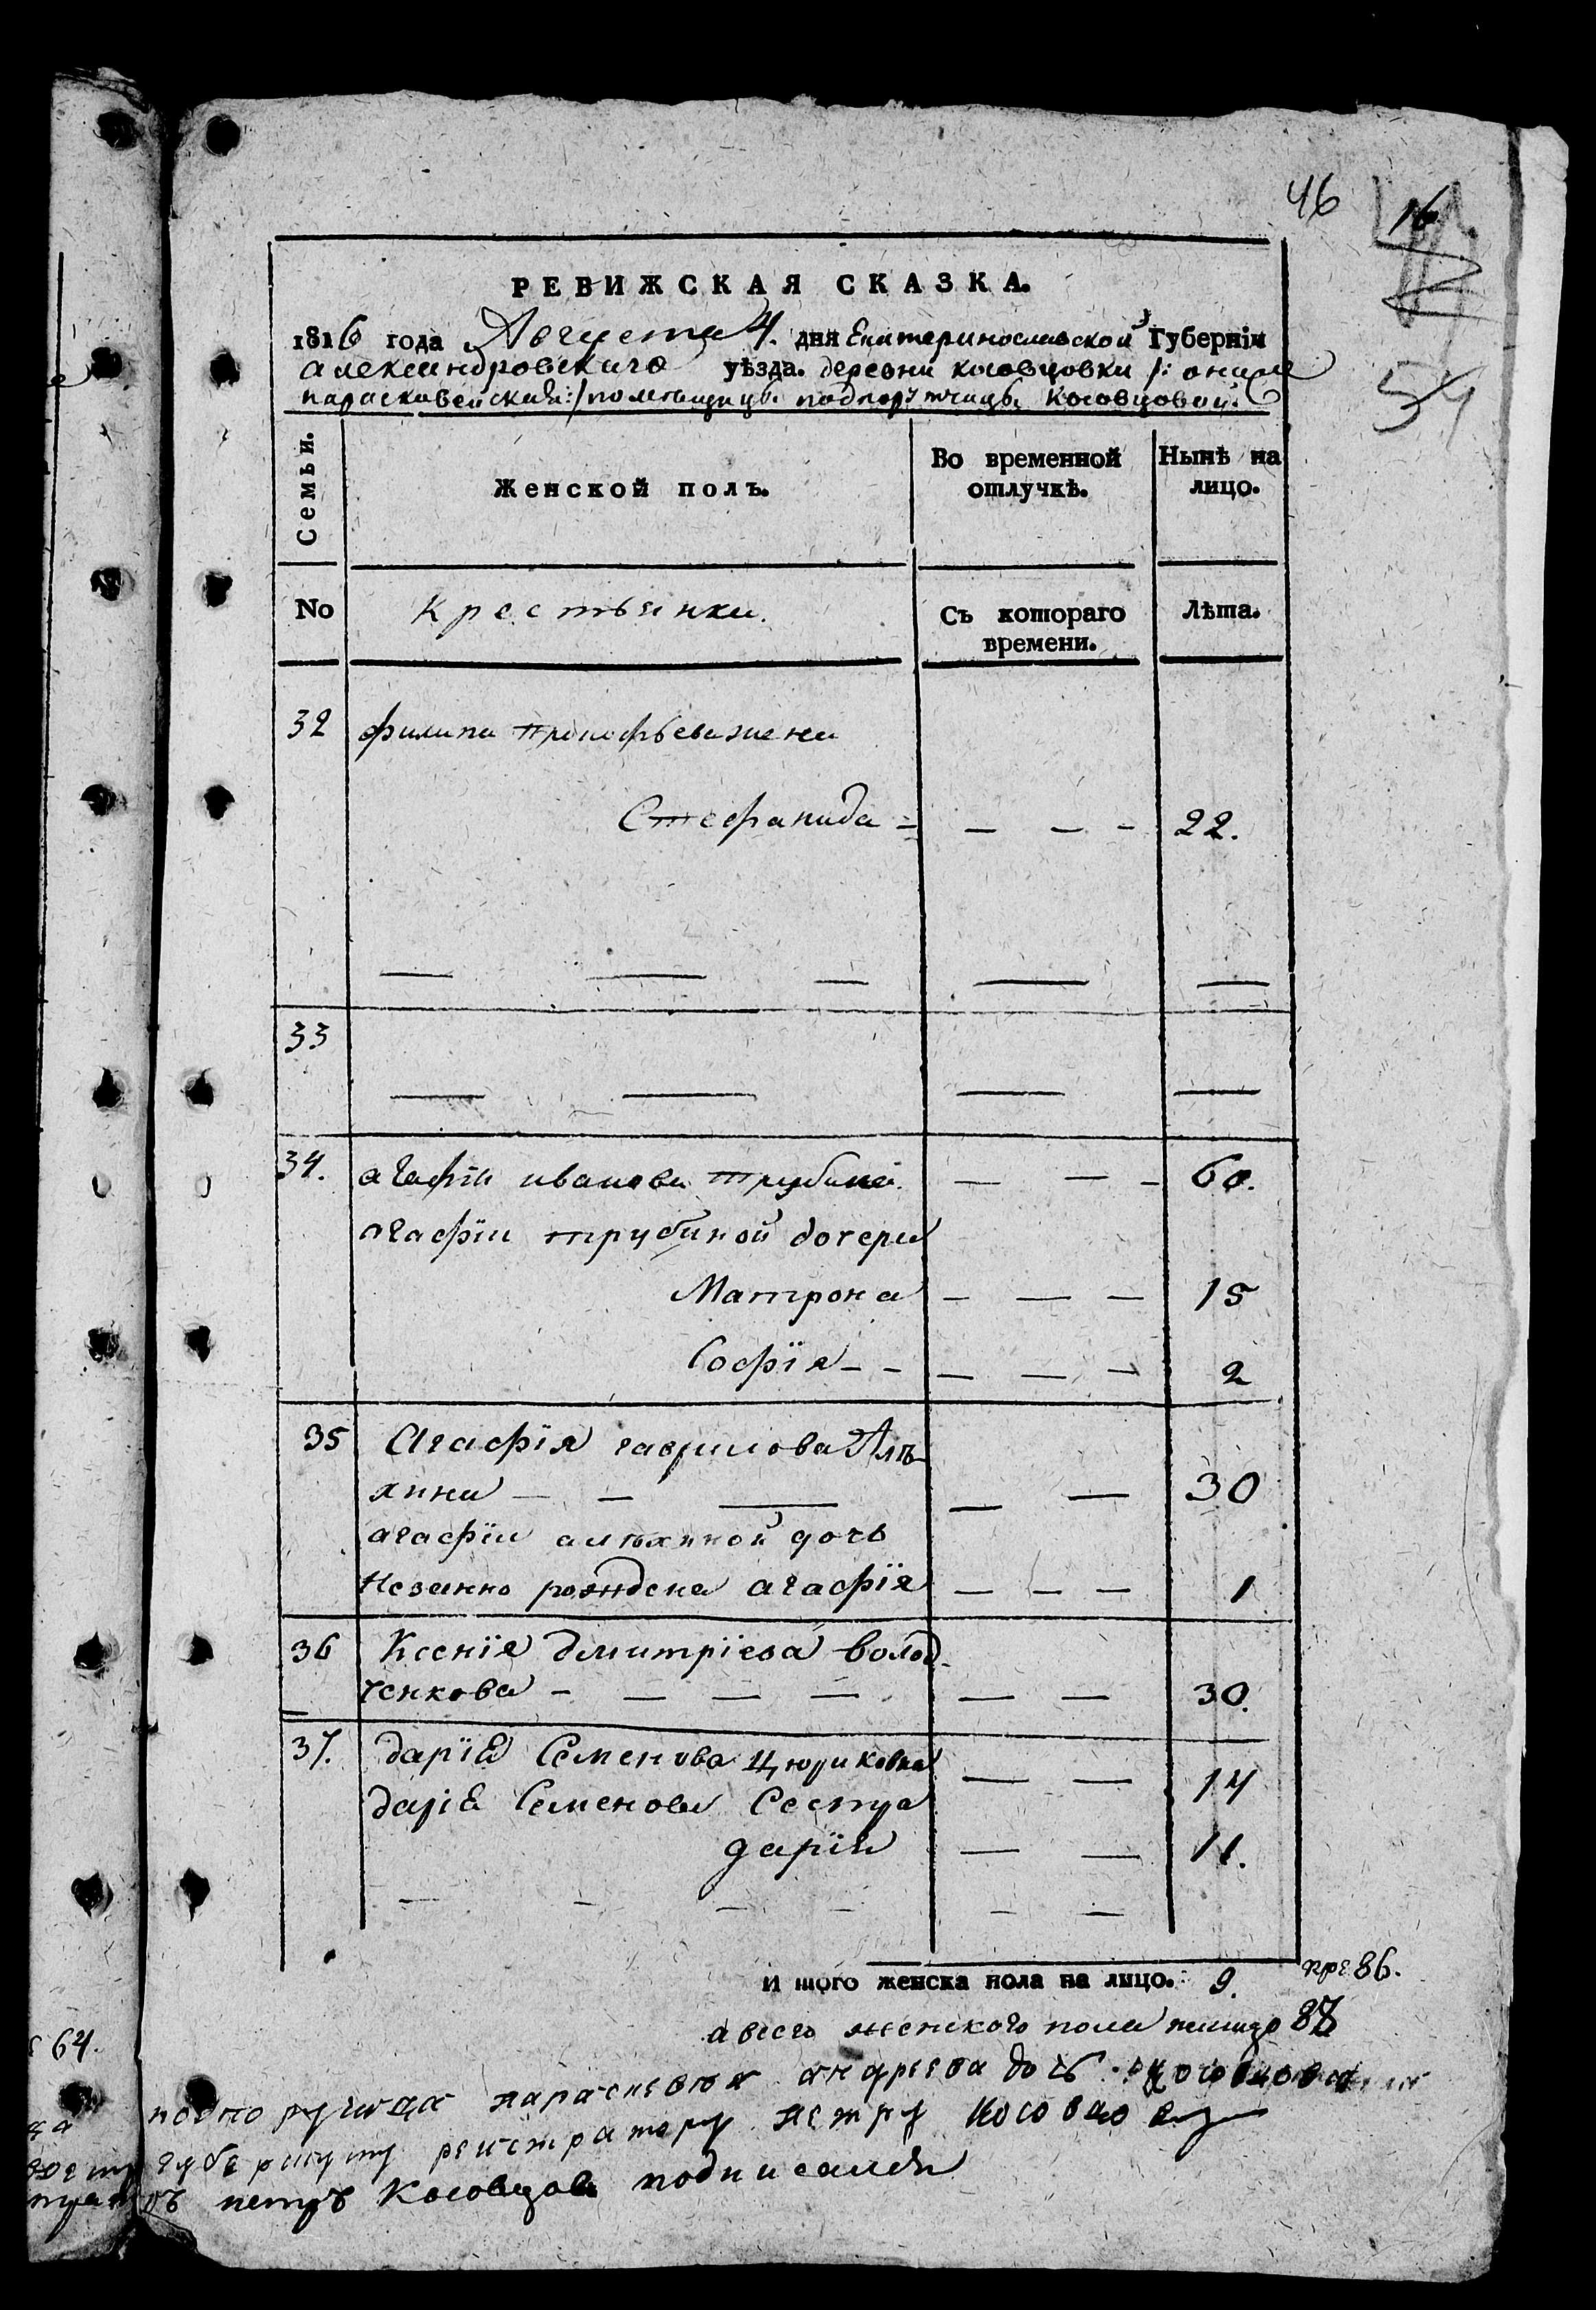 46
16
54
РЕВИЖСКАЯ СКАЗКА.
1816 года Августа 4. дня Екатеринославской Губерніи
александровскаго уѣзда. деревни косовцовки /: онаже
параскавейская:/ помещицы подпорутчицы Косовцовой.
Семьи. Женской полъ. Во временной отлучкѣ. Нынѣ на лицо.
No Крестьянки. Съ котораго времени. Лѣта.
32 филипа прокофьева жена
Стефанида - - - - 22.
33
34. агафія иванова трубина. - - - 60.
агафіи трубиной дочери
Матрона - - - 15
Софія - - - - - 2
35 Агафія гаврилова Алѣ-
хина - - - - - 30
агафіи алѣхиной дочь
незанно рождена агафія - - - 1
36 Ксенія дмитріева волод-
ченкова - - - - - - 30.
37. дарія Семенова Цюриковна - - 14
дарія Семенова Сестра
дарія - - 11.
Итого женска пола на лицо. 9. пре 86.
а всего женского пола налицо 87
64.
подпоручица параскевѣя андреева дочь косовцова
губе регистратору петру Косовцову
петръ Косовцовъ подписался